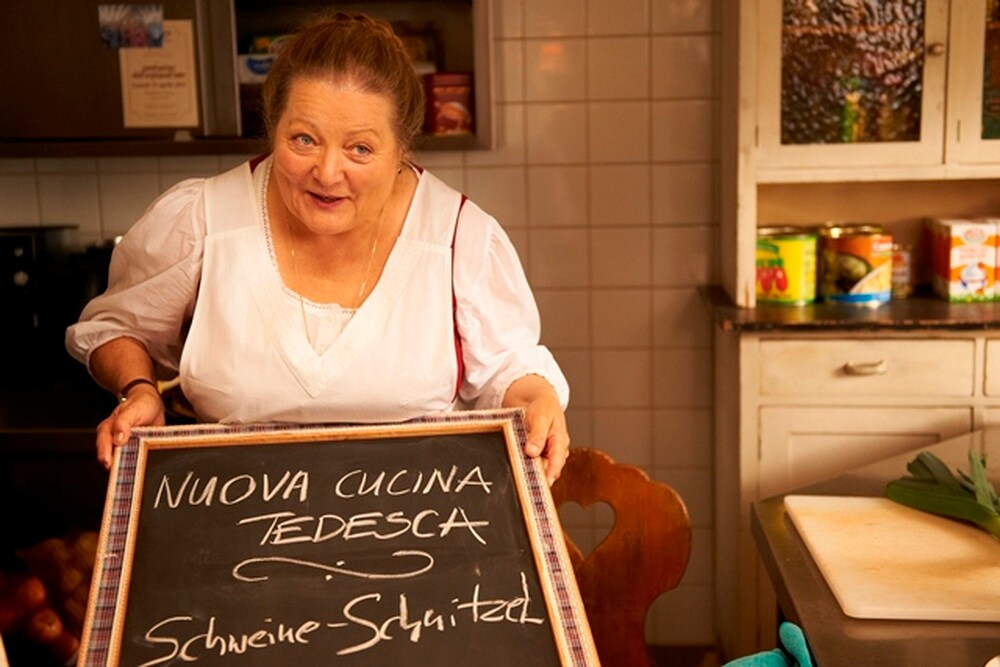 NUOVA CUCINA
TEDESCA
Schweine-Schnitzel